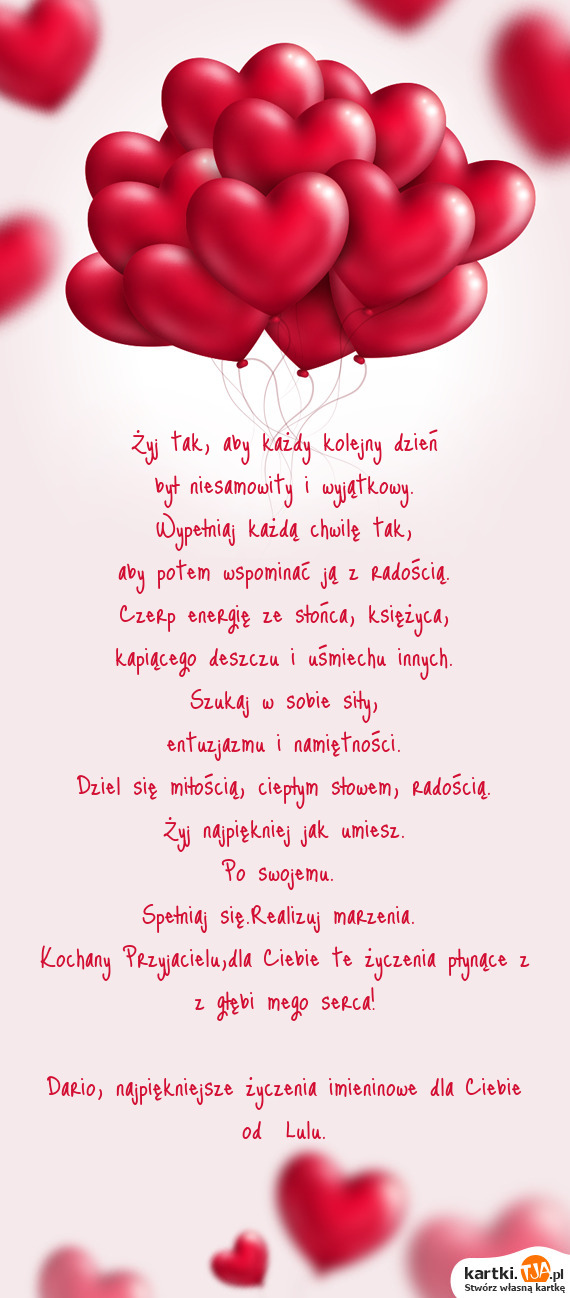 Żyj tak, aby każdy kolejny dzień
był niesamowity i wyjątkowy.
Wypełniaj każdą chwilę tak,
aby potem wspominać ją z radością.
Czerp energię ze słońca, księżyca,
kapiącego deszczu i uśmiechu innych.
Szukaj w sobie siły,
entuzjazmu i namiętności.
Dziel się miłością, ciepłym słowem, radością.
Żyj najpiękniej jak umiesz.
Po swojemu.
Spełniaj się.Realizuj marzenia.
Kochany Przyjacielu,dla Ciebie te życzenia płynące z
z głębi mego serca!
Dario, najpiękniejsze życzenia imieninowe dla Ciebie
od Lulu.
kartki.TJA.pl
Stwórz własną kartkę